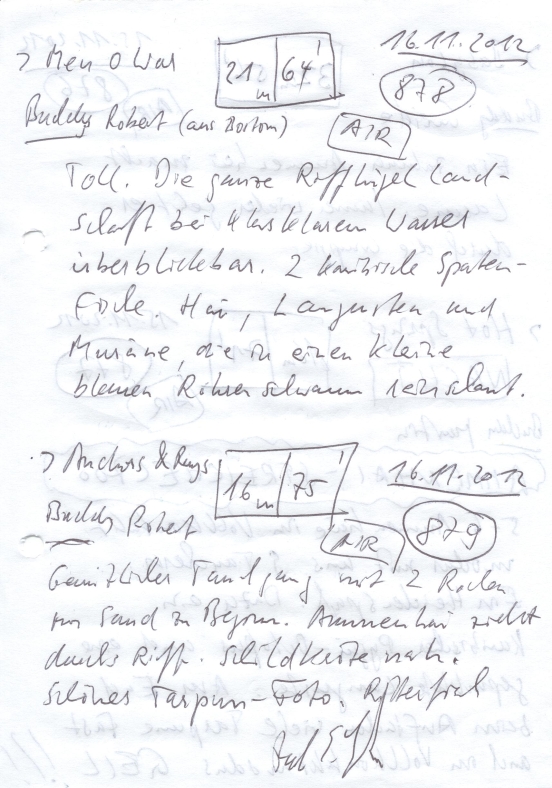 > Men O War
21 m 64'
16.11.2012
878
Buddy Robert (aus Boston)
AIR
Toll. Die ganze Riffhügel Land-
schaft bei klarklarem Wasser
überblickbar. 2 karibische Spaten-
Fische. Hai, Langusten und
Muräne, die in einen kleine
blauen Röhrenschwamm reinschaut.
> Anchors & Rays
16 m 75'
16.11.2012
879
Buddy Robert
AIR
Gemütlicher Tauchgang mit 2 Rochen
im Sand zu Beginn. Ammenhai zieht
durchs Riff. Schildkröte nah.
Schönes Tarpun-Foto.